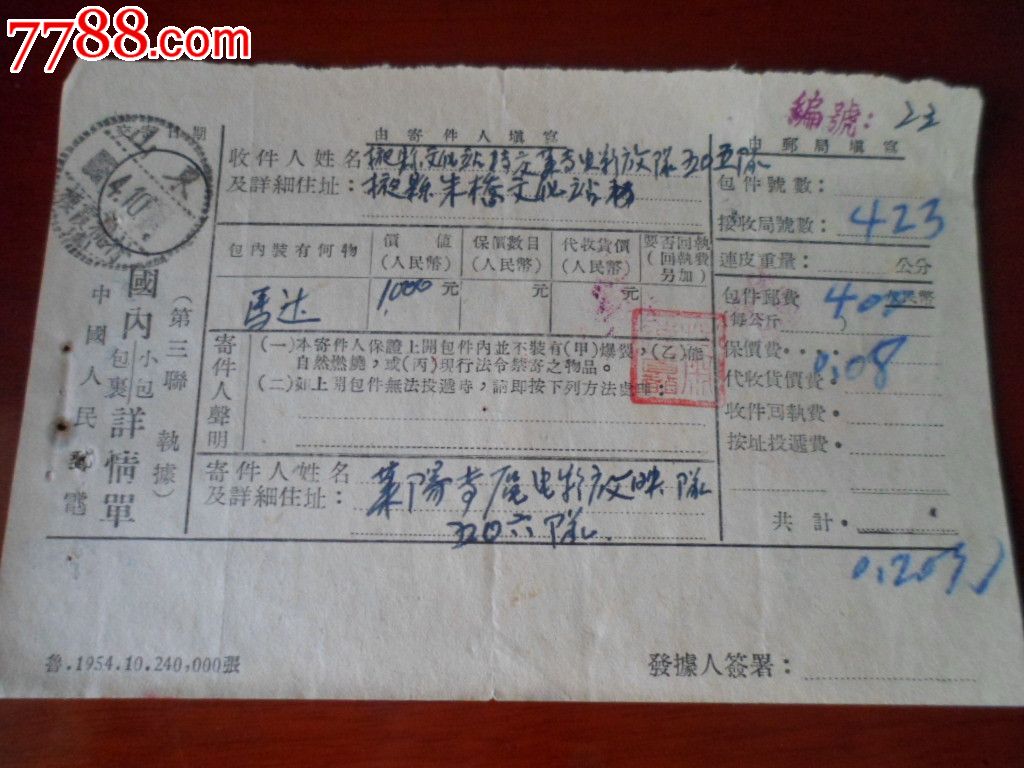 7788.com
編號：22
交寄日期
山東
4.10
由寄件人填寫
由郵局填寫
收件人姓名
及詳細住址：
掖縣朱橋文化站
包件號數：
接收局號數：423
連皮重量：公分
包內裝有何物
價值
(人民幣)
保價數目
(人民幣)
代收貨價
(人民幣)
要否回執
(回執費
另加)
馬达
1000元
元
元
包件郵費
(每公斤)
人民幣
保價費・0.08
代收貨價費・
收件回執費・
按址投遞費・
共計・
0.20
寄件人聲明
(一)本寄件人保證上開包件內並不裝有(甲)爆裂，(乙)能
自然燃燒，或(丙)現行法令禁寄之物品。
(二)如上開包件無法投遞時，請即按下列方法處理：
寄件人姓名
及詳細住址：
萊陽專區电影放映隊
五〇六隊
中國人民郵電
國內小包包裹詳情單
(第三聯執據)
魯.1954.10.240,000張
發據人簽署：